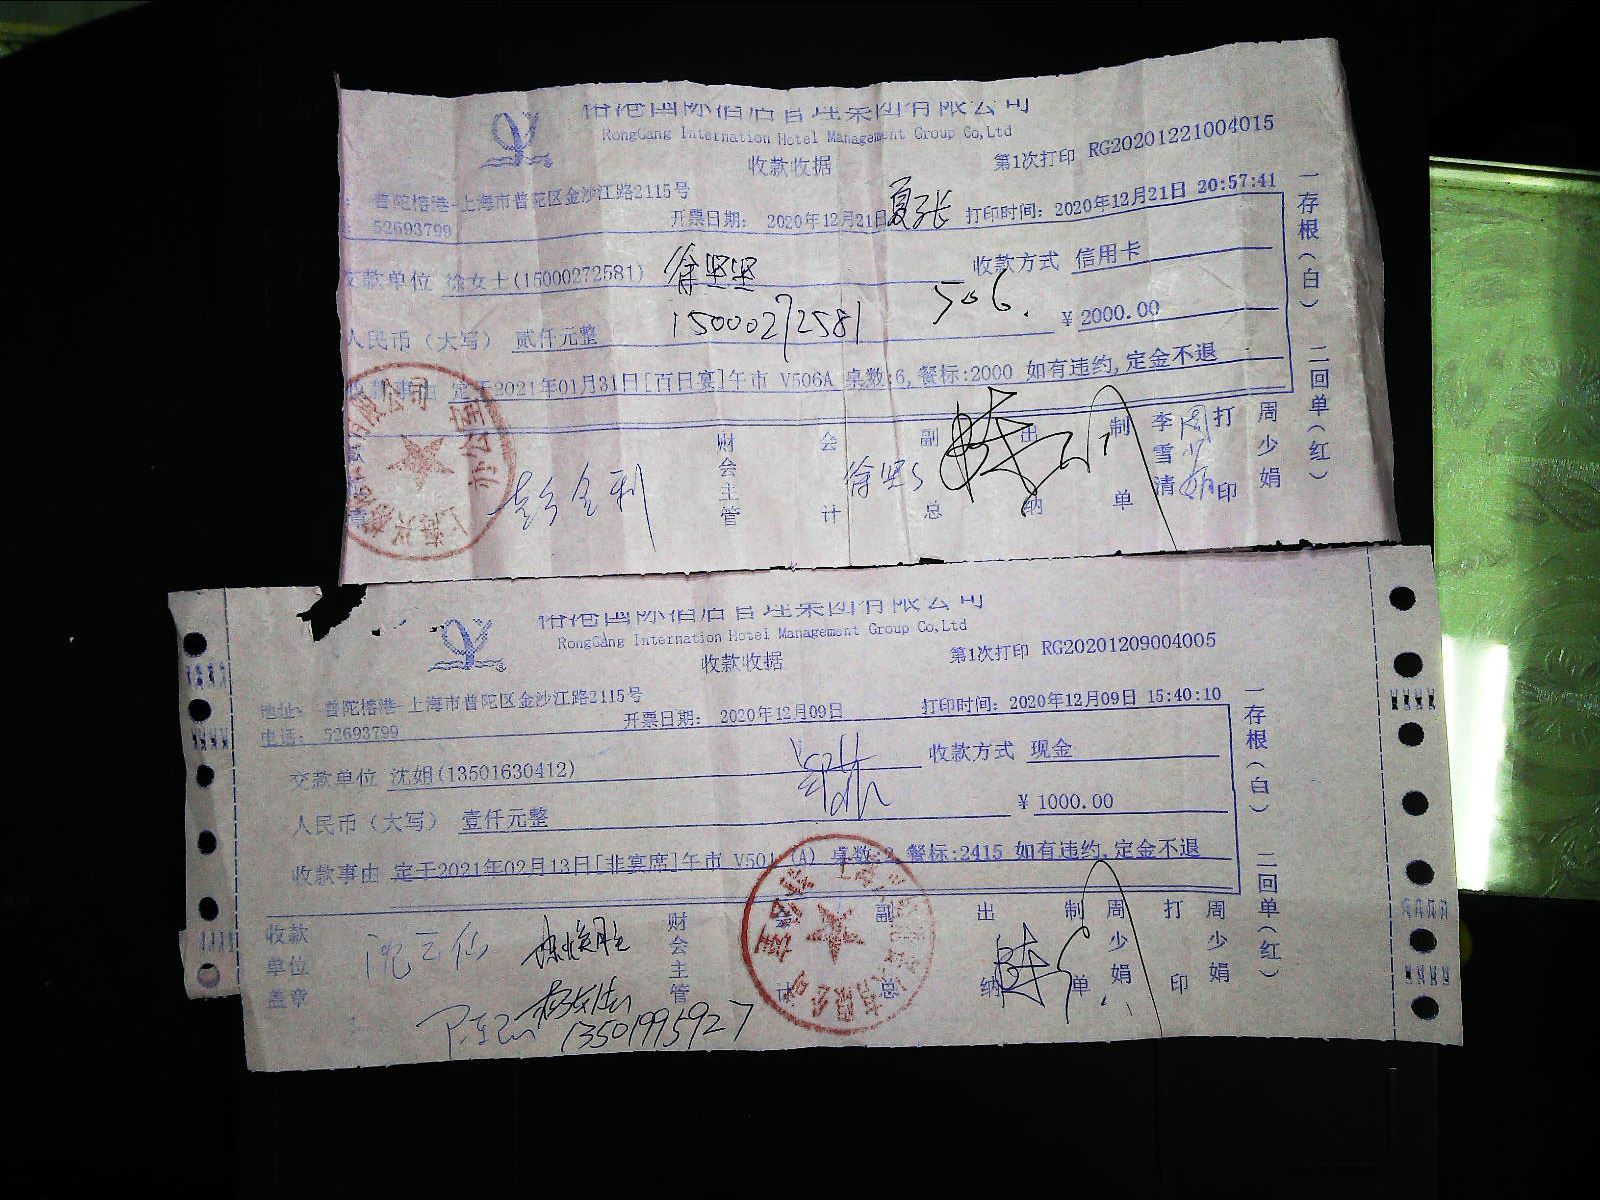 国际酒店管理集团有限公司
RongGang Internation Hotel Management Group Co,Ltd
收款收据
第1次打印 RG20201221004015
普陀榕港-上海市普陀区金沙江路2115号
52693799
开票日期: 2020年12月21日
打印时间: 2020年12月21日 20:57:41
交款单位 徐女士(15000272581) 徐坚坚
收款方式 信用卡
人民币(大写) 贰仟元整
15000272581
506.
¥ 2000.00
收款事由 定于2021年01月31日[百日宴]午市 V506A 桌数:6,餐标:2000 如有违约,定金不退
彭全利
财会主管
会计
副总
出纳
制单 李雪清
打印 周少娟
一存根(白) 二回单(红)
国际酒店管理集团有限公司
RongGang Internation Hotel Management Group Co,Ltd
收款收据
第1次打印 RG20201209004005
地址: 普陀榕港-上海市普陀区金沙江路2115号
电话: 52693799
开票日期: 2020年12月09日
打印时间: 2020年12月09日 15:40:10
交款单位 沈姐(13501630412)
收款方式 现金
人民币(大写) 壹仟元整
¥ 1000.00
收款事由 定于2021年02月13日[非宴席]午市 V501 (A) 桌数:2,餐标:2415 如有违约,定金不退
收款单位盖章
财会主管
副总
出纳
制单 周少娟
打印 周少娟
13501995927
一存根(白) 二回单(红)